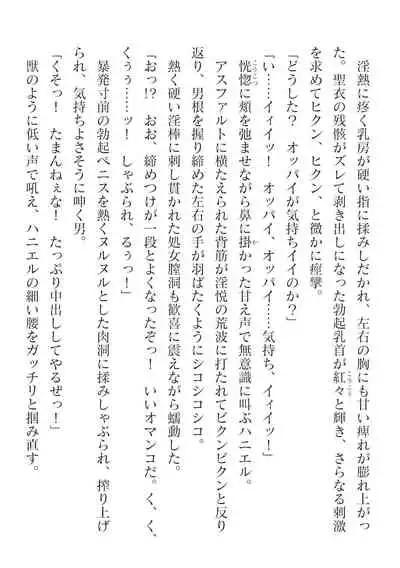 淫熱に疼く乳房が硬い指に揉みしだかれ、左右の胸にも甘い痺れが膨れ上がっ
た。聖衣の残骸がズレて剥き出しになった勃起乳首が紅々と輝き、さらなる刺激
を求めてヒクン、ヒクン、と微かに痙攣。
「どうした？　オッパイが気持ちイイのか？」
「い……イィイッ！　オッパイ、オッパイ……気持ち、イィイッ！」
恍惚に頬を弛ませながら鼻に掛かった甘え声で無意識に叫ぶハニエル。
アスファルトに横たえられた背筋が淫悦の荒波に打たれてビクンビクンと反り
返り、男根を握り締めた左右の手が羽ばたくようにシコシコシコ。
熱く硬い淫棒に刺し貫かれた処女膣洞も歓喜に震えながら蠕動した。
「おっ!?　おお、締めつけが一段とよくなったぞっ！　いいオマンコだ。く、く、
くぅぅ……ッ！　しゃぶられ、るぅっ！」
暴発寸前の勃起ペニスを熱くヌルヌルとした肉洞に揉みしゃぶられ、搾り上げ
られ、気持ちよさそうに呻く男。
「くそっ！　たまんねぇな！　たっぷり中出ししてやるぜっ！」
獣のように低い声で吼え、ハニエルの細い腰をガッチリと掴み直す。